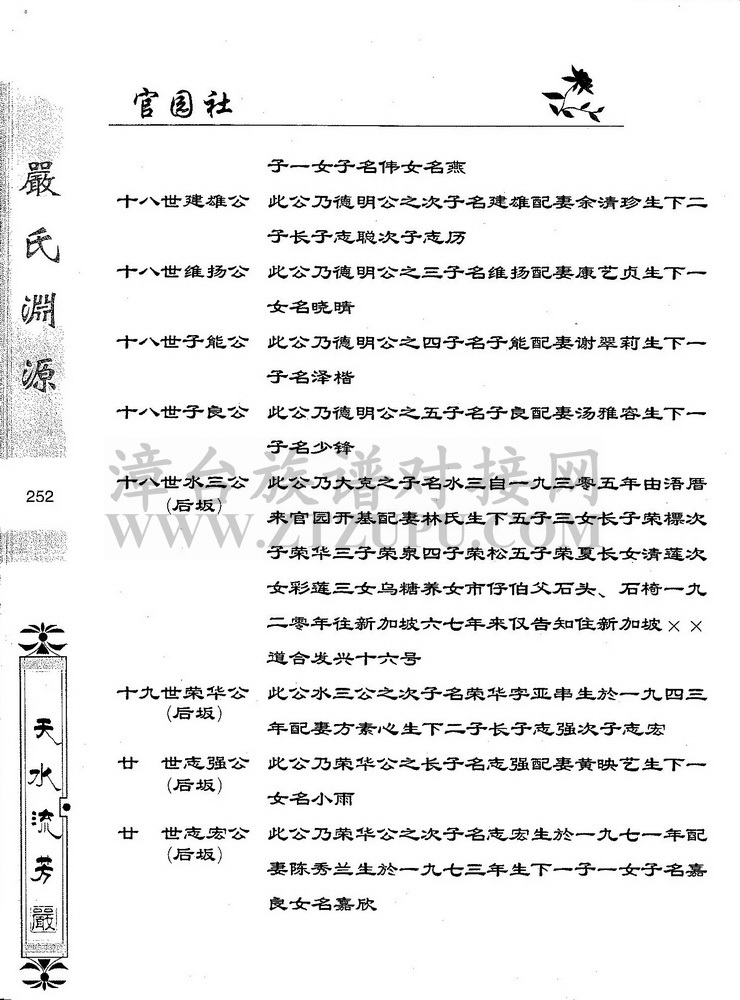 官园社
嚴氏淵源
252
天水流芳
嚴
子一女子名伟女名燕
十八世建雄公 此公乃德明公之次子名建雄配妻余清珍生下二
子长子志聪次子志历
十八世维扬公 此公乃德明公之三子名维扬配妻康艺贞生下一
女名晓晴
十八世子能公 此公乃德明公之四子名子能配妻谢翠莉生下一
子名泽楷
十八世子良公 此公乃德明公之五子名子良配妻汤雅容生下一
子名少锋
十八世水三公 此公乃大克之子名水三自一九三零五年由浯厝
(后坂) 来官园开基配妻林氏生下五子三女长子荣標次
子荣华三子荣泉四子荣松五子荣夏长女清莲次
女彩莲三女乌糖养女市仔伯父石头、石椅一九
二零年往新加坡六七年来仅告知住新加坡××
道合发兴十六号
十九世荣华公 此公水三公之次子名荣华字亚串生於一九四三
(后坂) 年配妻方素心生下二子长子志强次子志宏
廿 世志强公 此公乃荣华公之长子名志强配妻黄映艺生下一
(后坂) 女名小雨
廿 世志宏公 此公乃荣华公之次子名志宏生於一九七一年配
(后坂) 妻陈秀兰生於一九七三年生下一子一女子名嘉
良女名嘉欣
漳台族谱对接网
WWW.ZTZUPU.COM